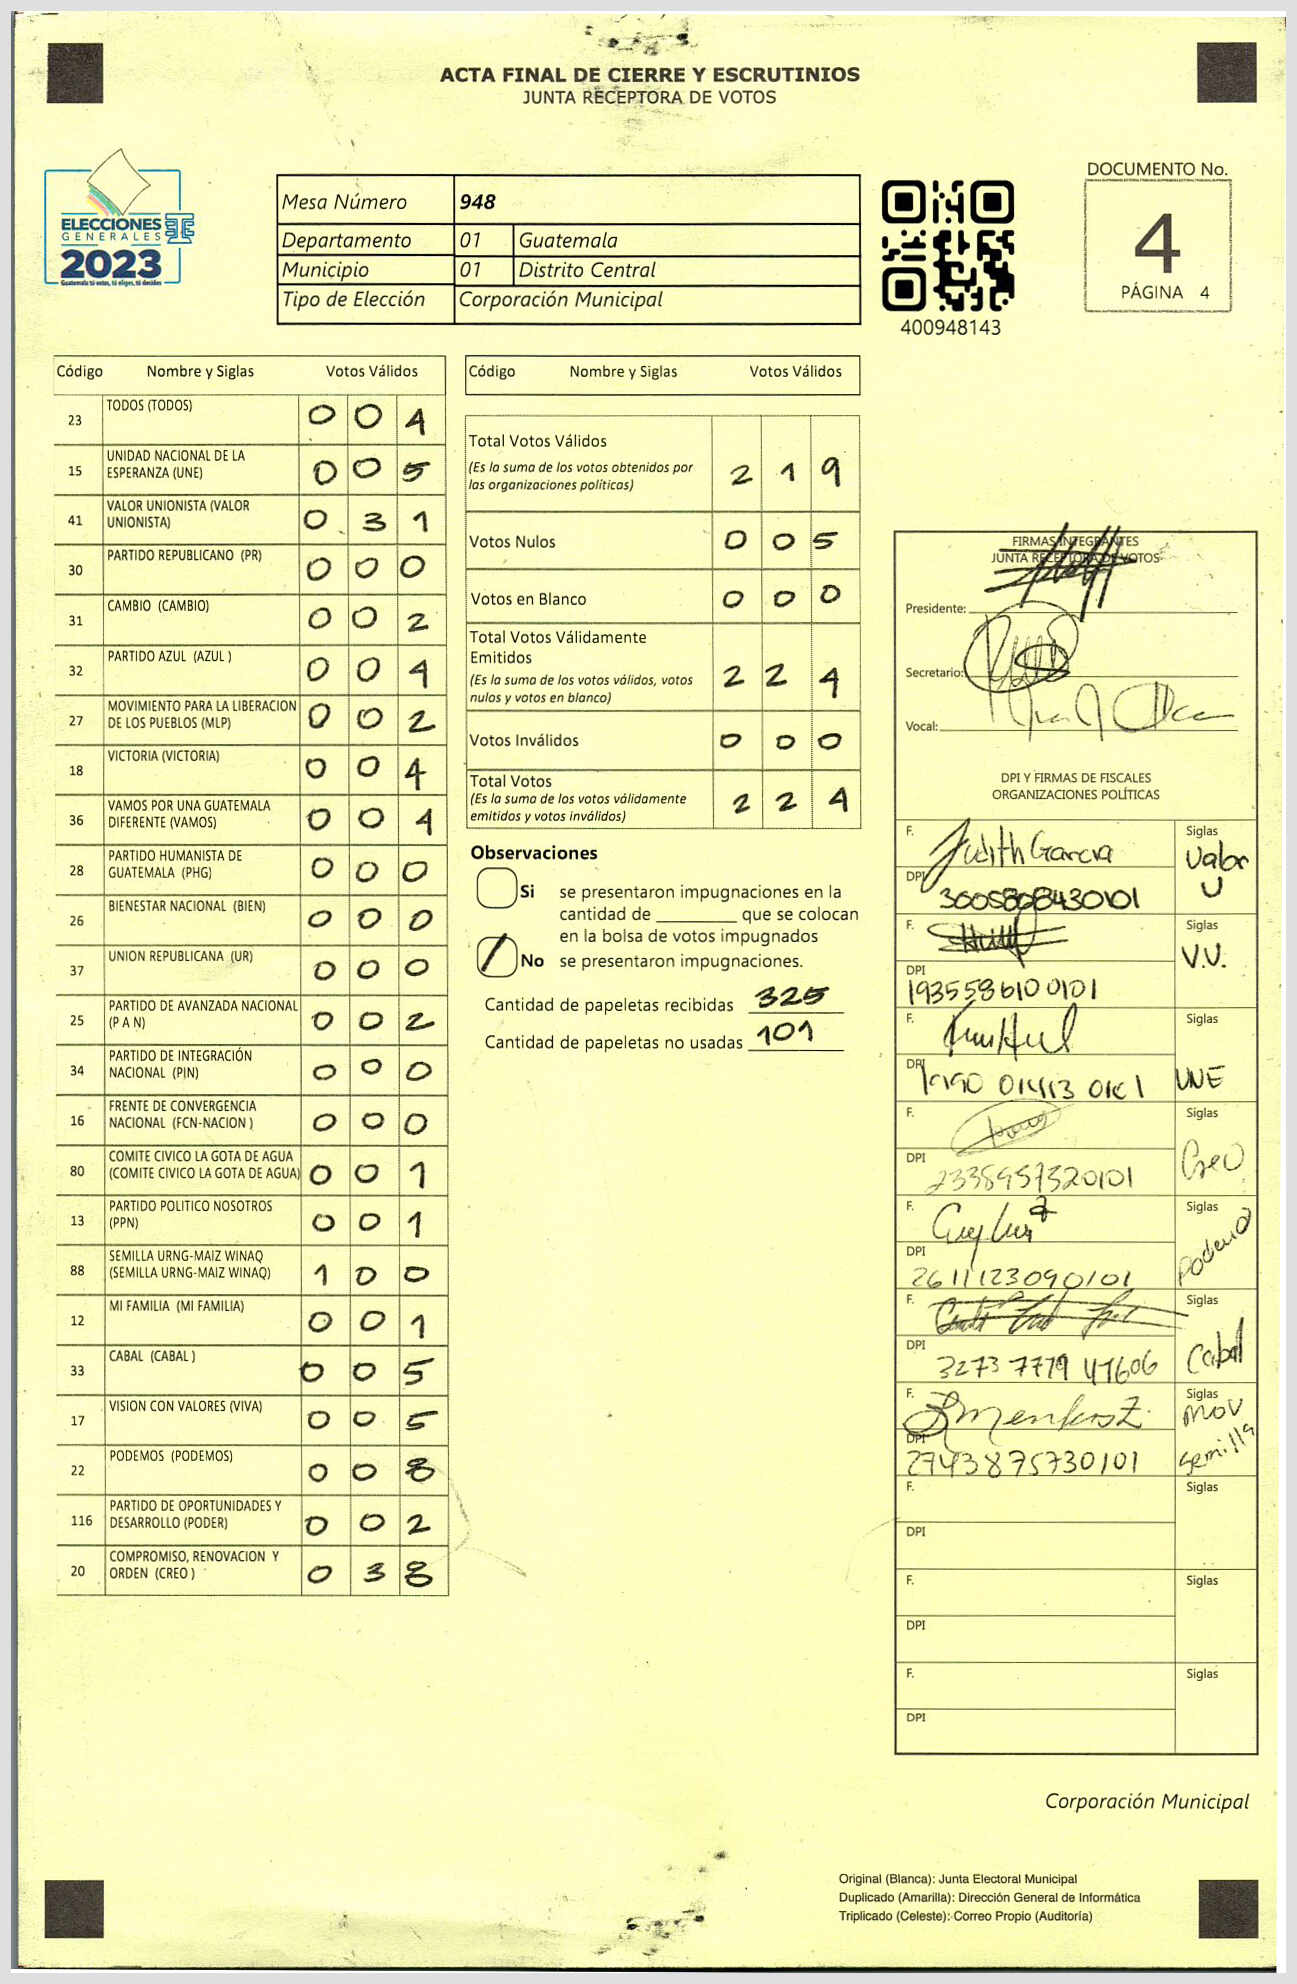 ACTA FINAL DE CIERRE Y ESCRUTINIOS
JUNTA RECEPTORA DE VOTOS
ELECCIONES
GENERALES
2023
Guatemala tú votas, tú eliges, tú decides
Mesa Número 948
Departamento 01 Guatemala
Municipio 01 Distrito Central
Tipo de Elección Corporación Municipal
400948143
DOCUMENTO No.
4
PÁGINA 4
Código Nombre y Siglas Votos Válidos
23 TODOS (TODOS) 0 0 4
15 UNIDAD NACIONAL DE LA
ESPERANZA (UNE) 0 0 5
41 VALOR UNIONISTA (VALOR
UNIONISTA) 0 3 1
30 PARTIDO REPUBLICANO (PR) 0 0 0
31 CAMBIO (CAMBIO) 0 0 2
32 PARTIDO AZUL (AZUL ) 0 0 4
27 MOVIMIENTO PARA LA LIBERACION
DE LOS PUEBLOS (MLP) 0 0 2
18 VICTORIA (VICTORIA) 0 0 4
36 VAMOS POR UNA GUATEMALA
DIFERENTE (VAMOS) 0 0 4
28 PARTIDO HUMANISTA DE
GUATEMALA (PHG) 0 0 0
26 BIENESTAR NACIONAL (BIEN) 0 0 0
37 UNION REPUBLICANA (UR) 0 0 0
25 PARTIDO DE AVANZADA NACIONAL
(P A N) 0 0 2
34 PARTIDO DE INTEGRACIÓN
NACIONAL (PIN) 0 0 0
16 FRENTE DE CONVERGENCIA
NACIONAL (FCN-NACION ) 0 0 0
80 COMITE CIVICO LA GOTA DE AGUA
(COMITE CIVICO LA GOTA DE AGUA) 0 0 1
13 PARTIDO POLITICO NOSOTROS
(PPN) 0 0 1
88 SEMILLA URNG-MAIZ WINAQ
(SEMILLA URNG-MAIZ WINAQ) 1 0 0
12 MI FAMILIA (MI FAMILIA) 0 0 1
33 CABAL (CABAL ) 0 0 5
17 VISION CON VALORES (VIVA) 0 0 5
22 PODEMOS (PODEMOS) 0 0 8
116 PARTIDO DE OPORTUNIDADES Y
DESARROLLO (PODER) 0 0 2
20 COMPROMISO, RENOVACION Y
ORDEN (CREO ) 0 3 8
Código Nombre y Siglas Votos Válidos
Total Votos Válidos
(Es la suma de los votos obtenidos por
las organizaciones políticas) 2 1 9
Votos Nulos 0 0 5
Votos en Blanco 0 0 0
Total Votos Válidamente
Emitidos
(Es la suma de los votos válidos, votos
nulos y votos en blanco) 2 2 4
Votos Inválidos 0 0 0
Total Votos
(Es la suma de los votos válidamente
emitidos y votos inválidos) 2 2 4
Observaciones
Si se presentaron impugnaciones en la
cantidad de ________ que se colocan
en la bolsa de votos impugnados
No se presentaron impugnaciones.
Cantidad de papeletas recibidas 325
Cantidad de papeletas no usadas 101
FIRMAS INTEGRANTES
JUNTA RECEPTORA DE VOTOS
Presidente:
Secretario:
Vocal:
DPI Y FIRMAS DE FISCALES
ORGANIZACIONES POLÍTICAS
F. Judith Garcia Siglas
Valor
U
DPI 3005808430101
F. Siglas
V.V.
DPI
1935586100101
F. Siglas
DPI UNE
F. Siglas
Creo
DPI
F. Siglas
DPI
2611123090101
F. Siglas
Cabal
DPI
3273 7779 47606
F. Siglas
Mov
Semilla
DPI
2743875730101
F. Siglas
DPI
F. Siglas
DPI
F. Siglas
DPI
Corporación Municipal
Original (Blanca): Junta Electoral Municipal
Duplicado (Amarilla): Dirección General de Informática
Triplicado (Celeste): Correo Propio (Auditoría)